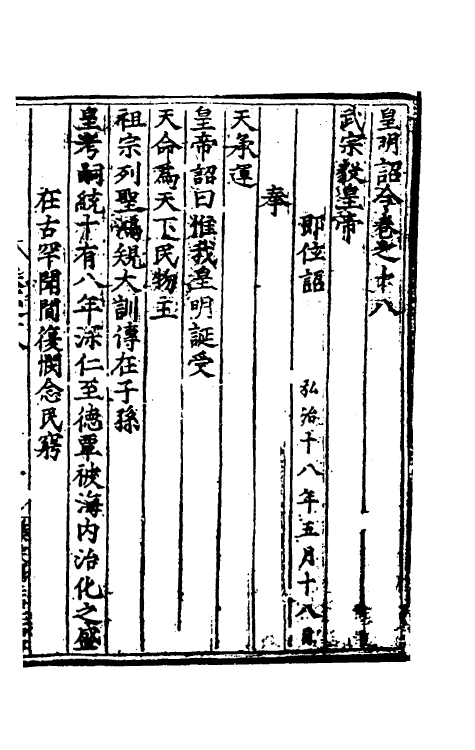 皇明詔令卷之十八
武宗毅皇帝
即位詔 弘治十八年五月十八日
奉
天承運
皇帝詔曰惟我皇明誕受
天命為天下民物主
祖宗列聖鴻規大訓傳在子孫
皇考嗣統十有八年深仁至德覃被海內治化之盛
在古罕聞間復憫念民窮